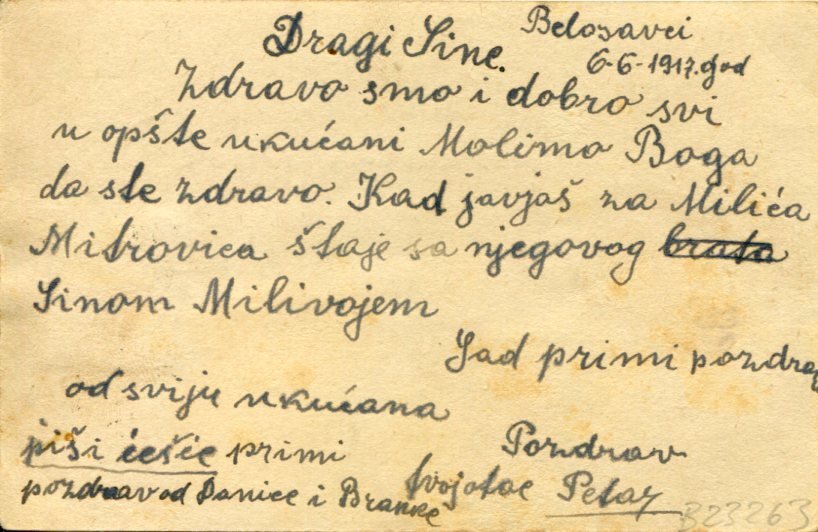 Belosavci
6-6-1917.god
Dragi Sine.
Zdravo smo i dobro svi
u opšte ukućani Molimo Boga
da ste zdravo. Kad javjaš za Milića
Mitrovica štaje sa njegovog brata
Sinom Milivojem
Sad primi pozdrav
od sviju ukućana
piši ćešće primi
Pozdrav
pozdrav od Danice i Branke
tvoj otac Petar
B23263